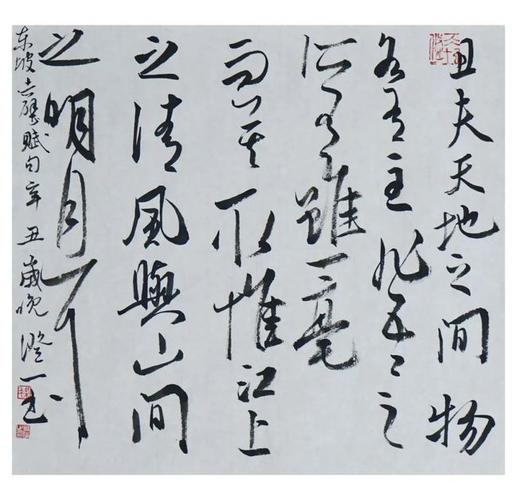 且夫天地之间物
各有主非吾之
所有雖一毫
而莫取惟江上
之清風與山間
之明月
东坡赤壁賦句辛丑歲晚澄一书